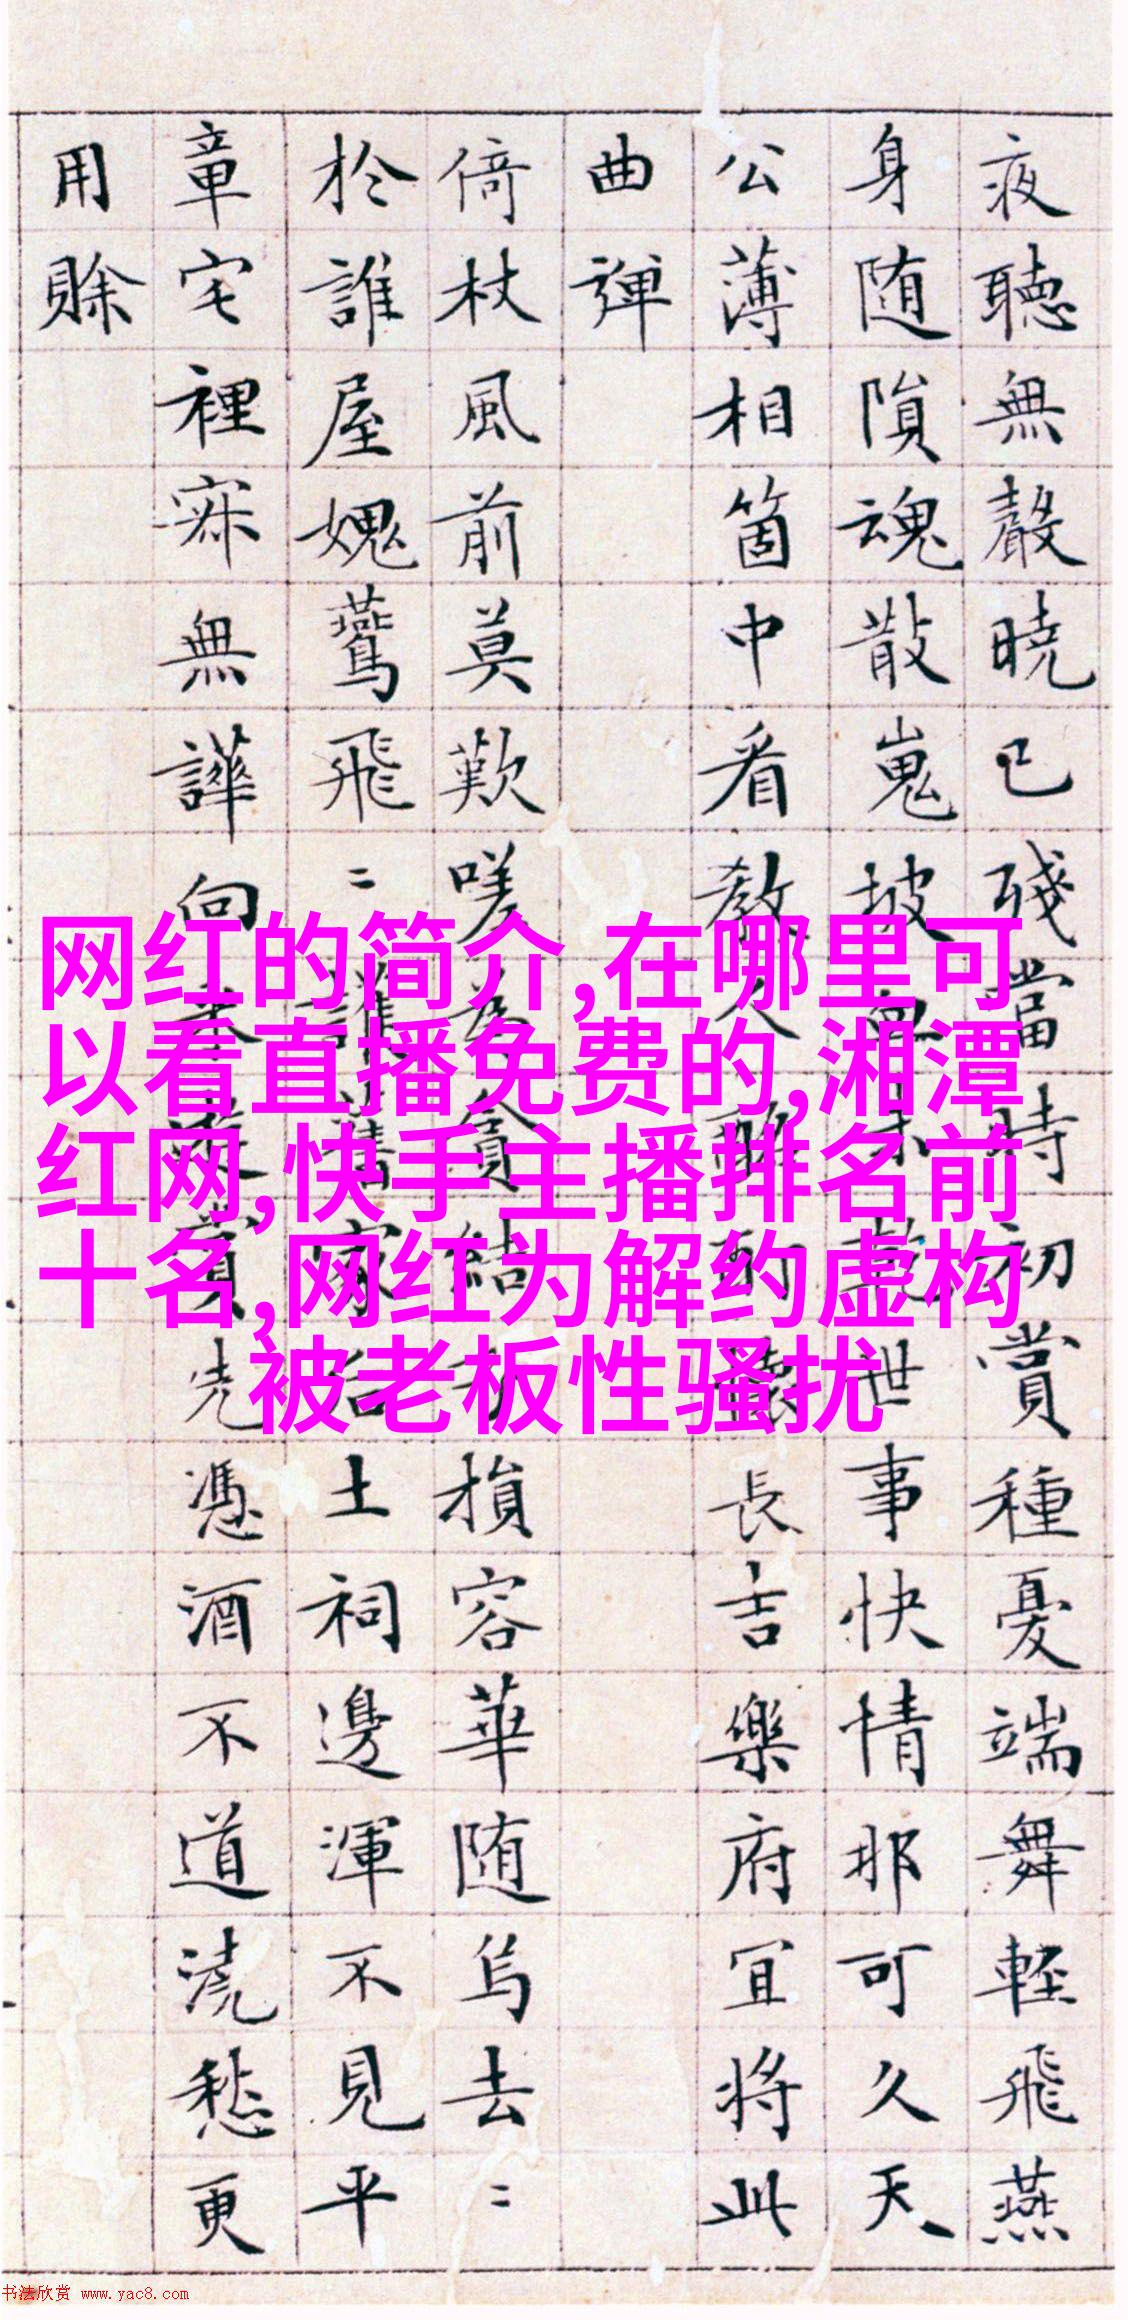 夜聽無聲曉已殘當時初賞種憂端舞輕飛燕
身随隕魂散嵬坡世事快情那可久天
公薄相箇中看教長吉樂府宜將此
曲彈
倚杖風前莫歎嗟貪結損容華随烏去〻
於誰屋愧鷰飛〻家土祠邊渾不見平
章宅裡寂無譁向賓先憑酒不道澆愁更
用賒
网红的简介,在哪里可
以看直播免费的,湘潭
红网,快手主播排名前
十名,网红为解约虚构
被老板性骚扰
书法欣赏 www.yac8.com